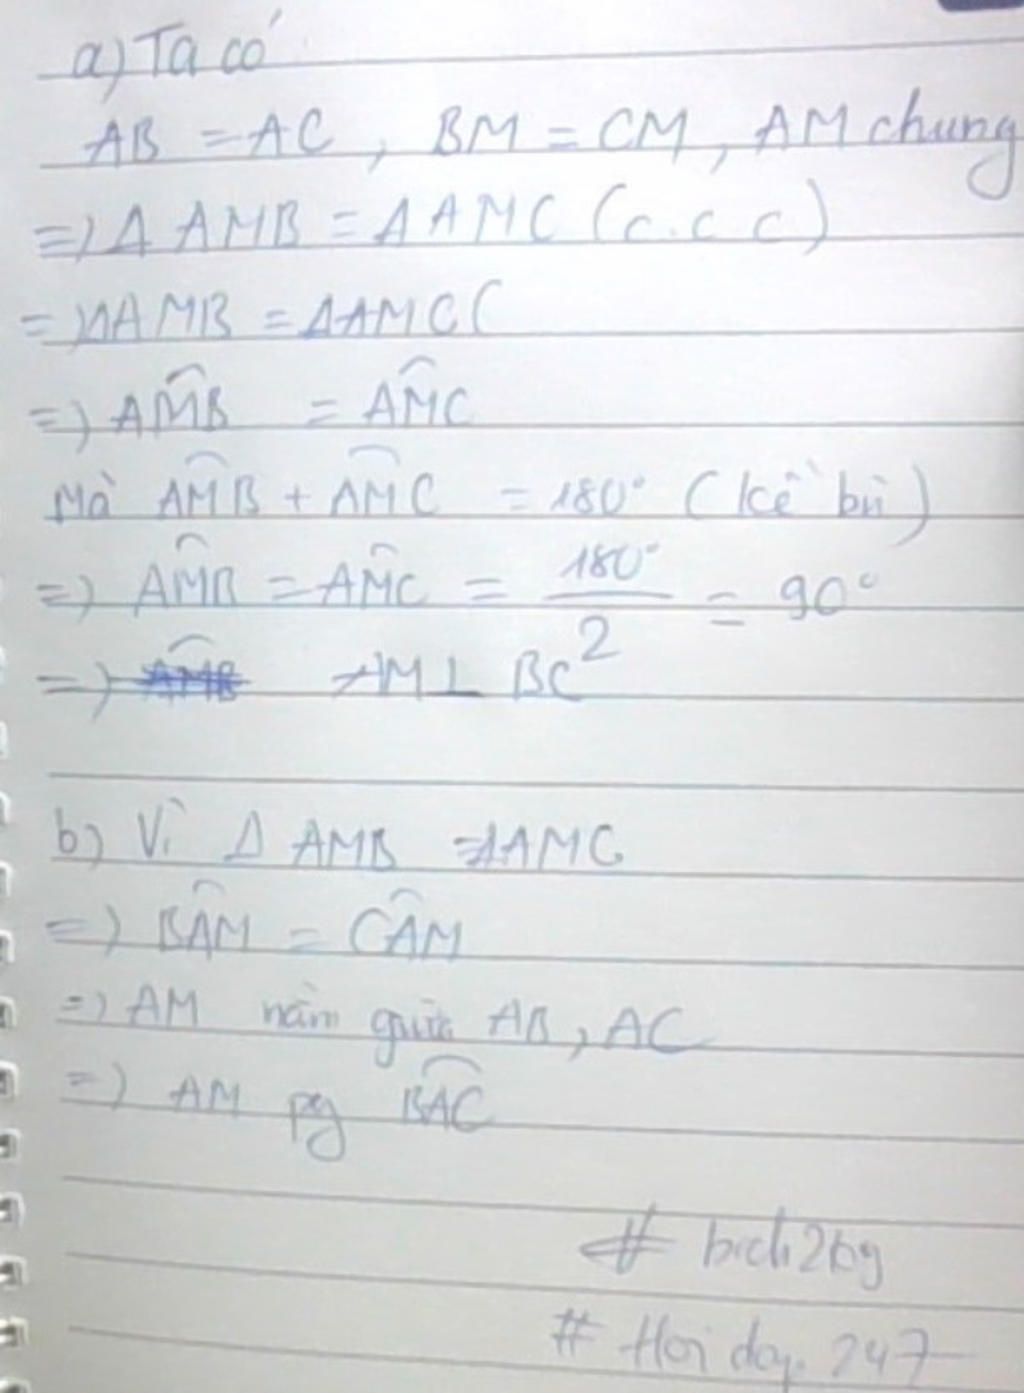 a) Ta có
AB = AC, BM = CM, AM chung
=) Δ AMB = Δ AMC (c.c c)
=) ΔAMB = ΔAMC (
=) AM̂B = AM̂C
Mà AM̂B + AM̂C = 180° (kề bù)
=) AM̂B = AM̂C = 180°/2 = 90°
=) AM ⊥ BC
b) Vì Δ AMB = ΔAMC
=) BÂM = CÂM
=) AM nằm giữa AB, AC
=) AM pg BÂC
# bich2kg
# Hoi day. 247